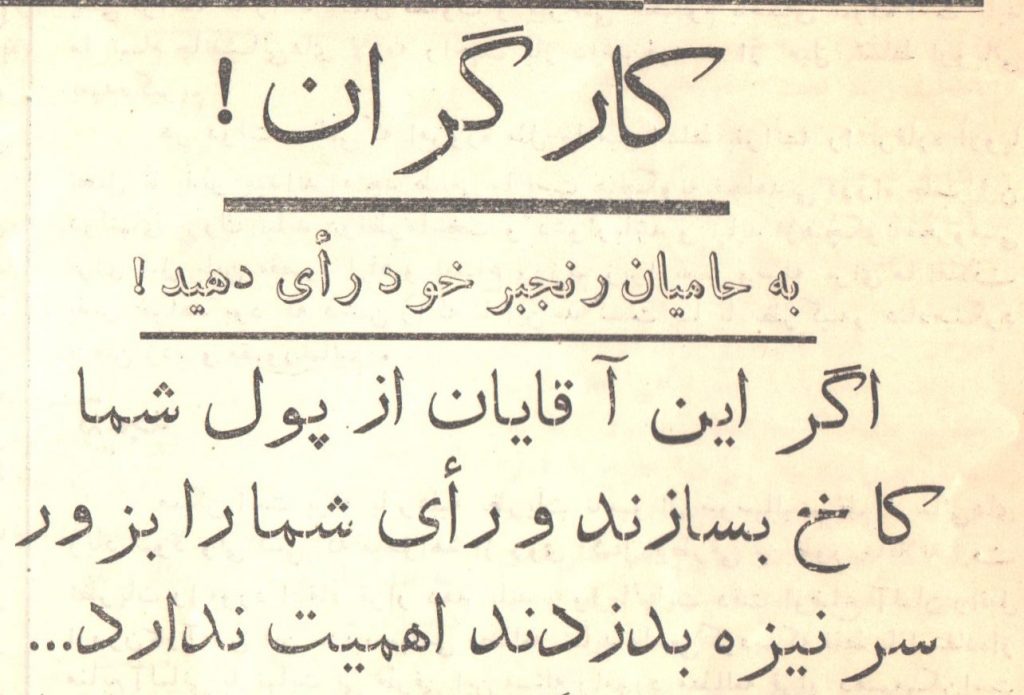 کارگران!
به حامیان رنجبر خود رأی دهید!
اگر این آقایان از پول شما
کاخ بسازند و رأی شما را بزور
سر نیزه بدزدند اهمیت ندارد...